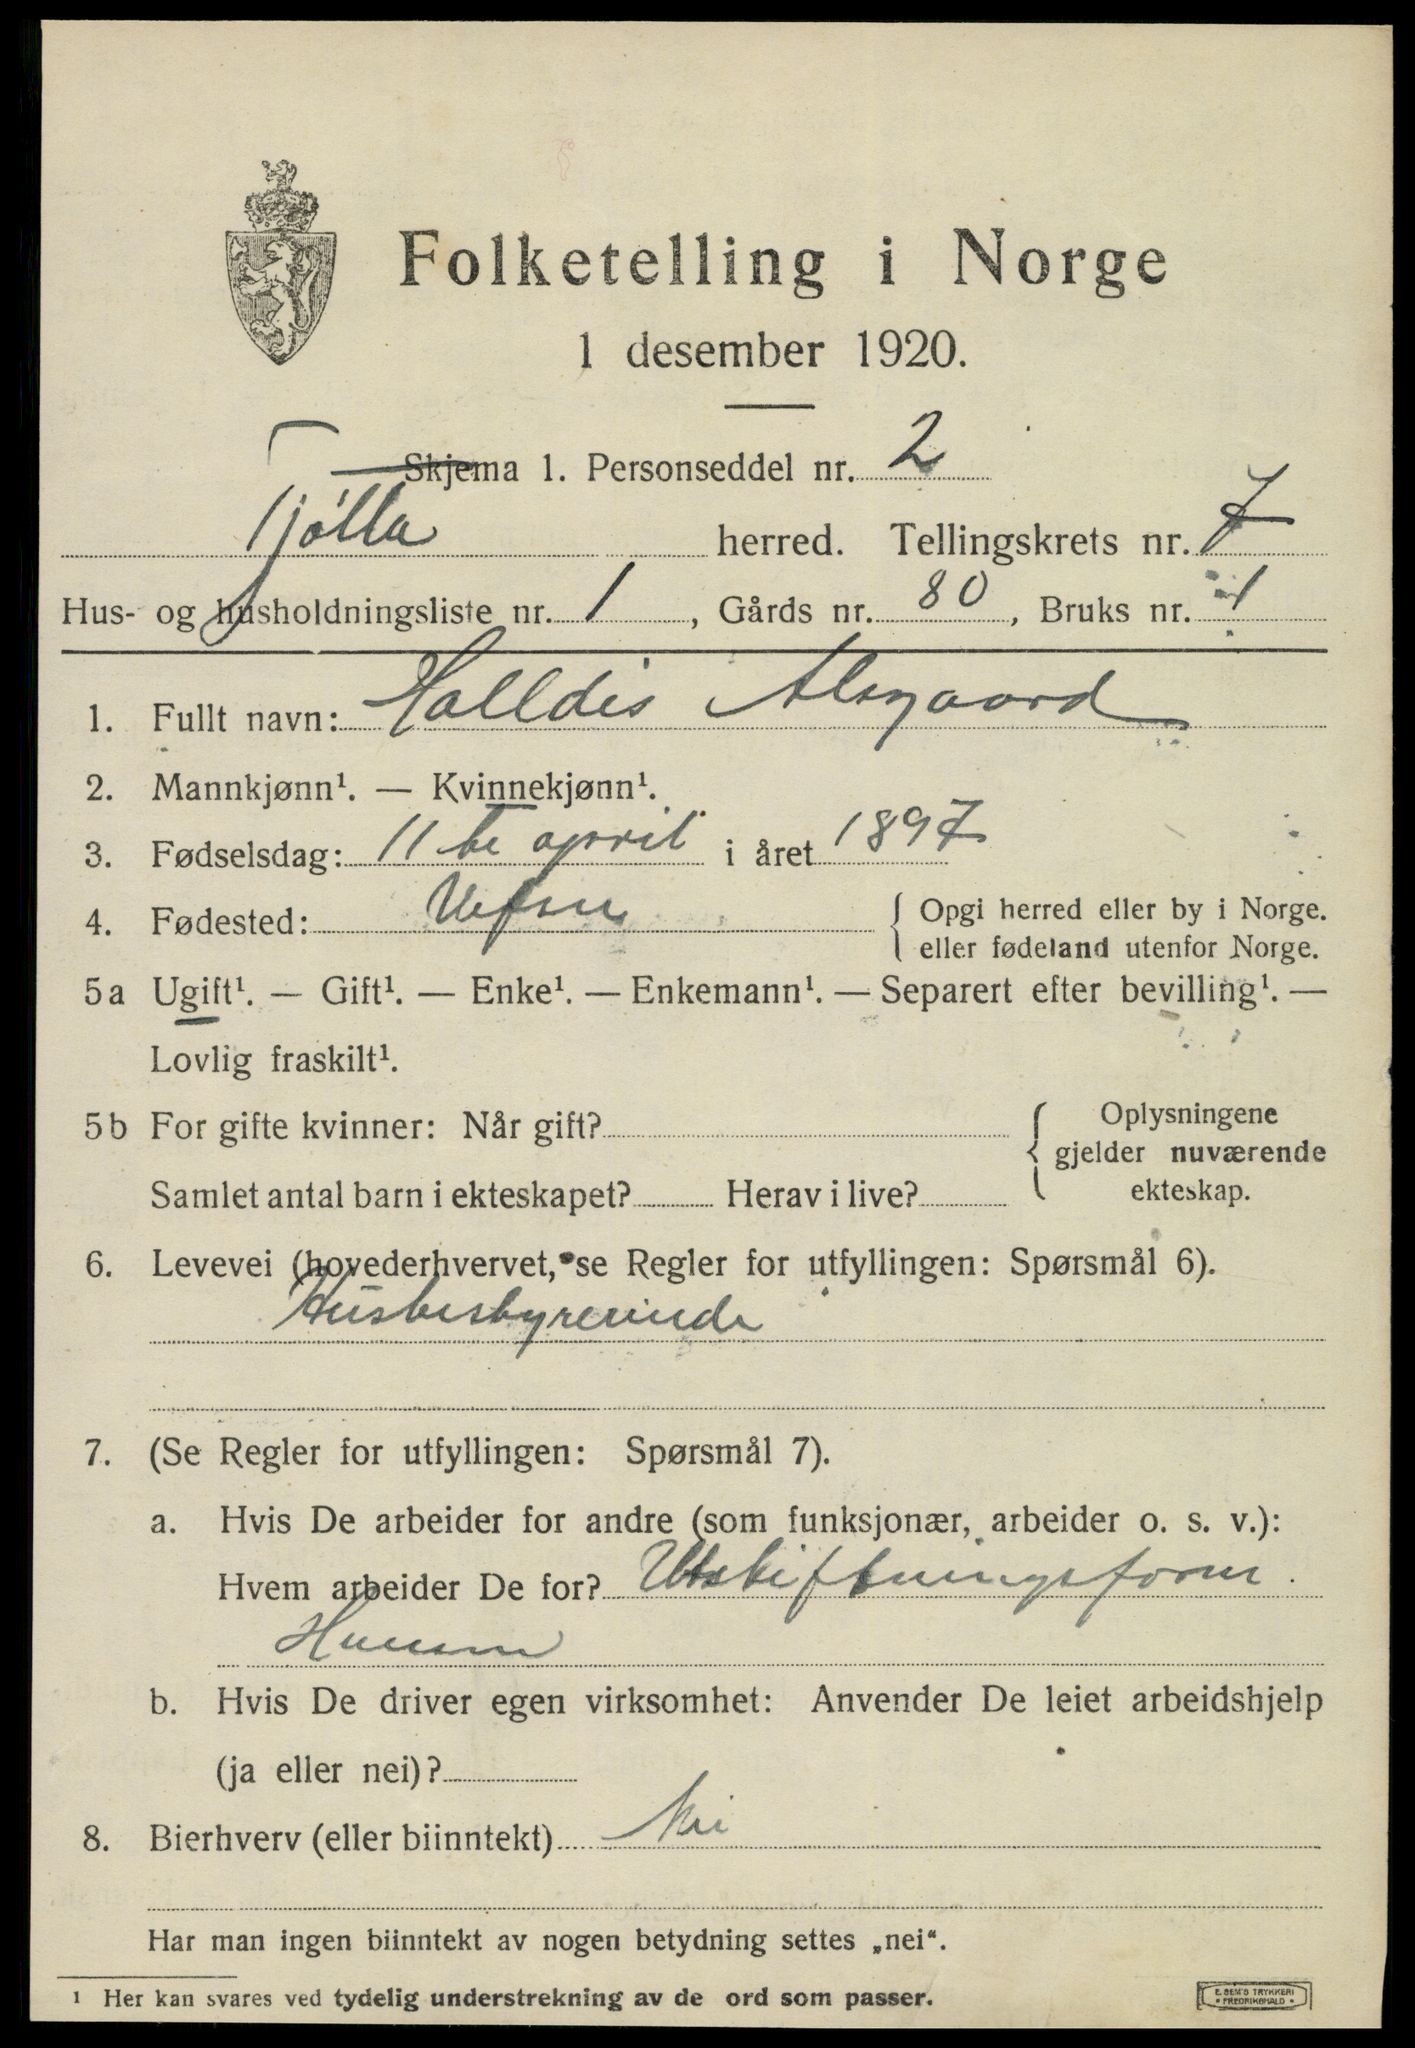 Folketelling i Norge
1 desember 1920.
Skjema 1. Personseddel nr. 2
Tjøtta herred. Tellingskrets nr. 7
Hus- og husholdningsliste nr. 1, Gårds nr. 80, Bruks nr. 1
1. Fullt navn: Halldis Alsgaard
2. Mannkjønn¹. — Kvinnekjønn¹.
3. Fødselsdag: 11te april i året 1897
4. Fødested: Vefsn { Opgi herred eller by i Norge.
eller fødeland utenfor Norge.
5a Ugift¹. — Gift¹. — Enke¹. — Enkemann¹. — Separert efter bevilling¹. —
Lovlig fraskilt¹.
5b For gifte kvinner: Når gift? { Oplysningene
gjelder nuværende
Samlet antal barn i ekteskapet? Herav i live? ekteskap.
6. Levevei (hovederhvervet, se Regler for utfyllingen: Spørsmål 6).
Husbestyrerinde
7. (Se Regler for utfyllingen: Spørsmål 7).
a. Hvis De arbeider for andre (som funksjonær, arbeider o. s. v.):
Hvem arbeider De for? Utskiftningsform.
b. Hvis De driver egen virksomhet: Anvender De leiet arbeidshjelp
(ja eller nei)?
8. Bierhverv (eller biinntekt) Nei
Har man ingen biinntekt av nogen betydning settes „nei“.
¹ Her kan svares ved tydelig understrekning av de ord som passer.
E. SEM'S TRYKKERI
• FREDRIKSHALD •